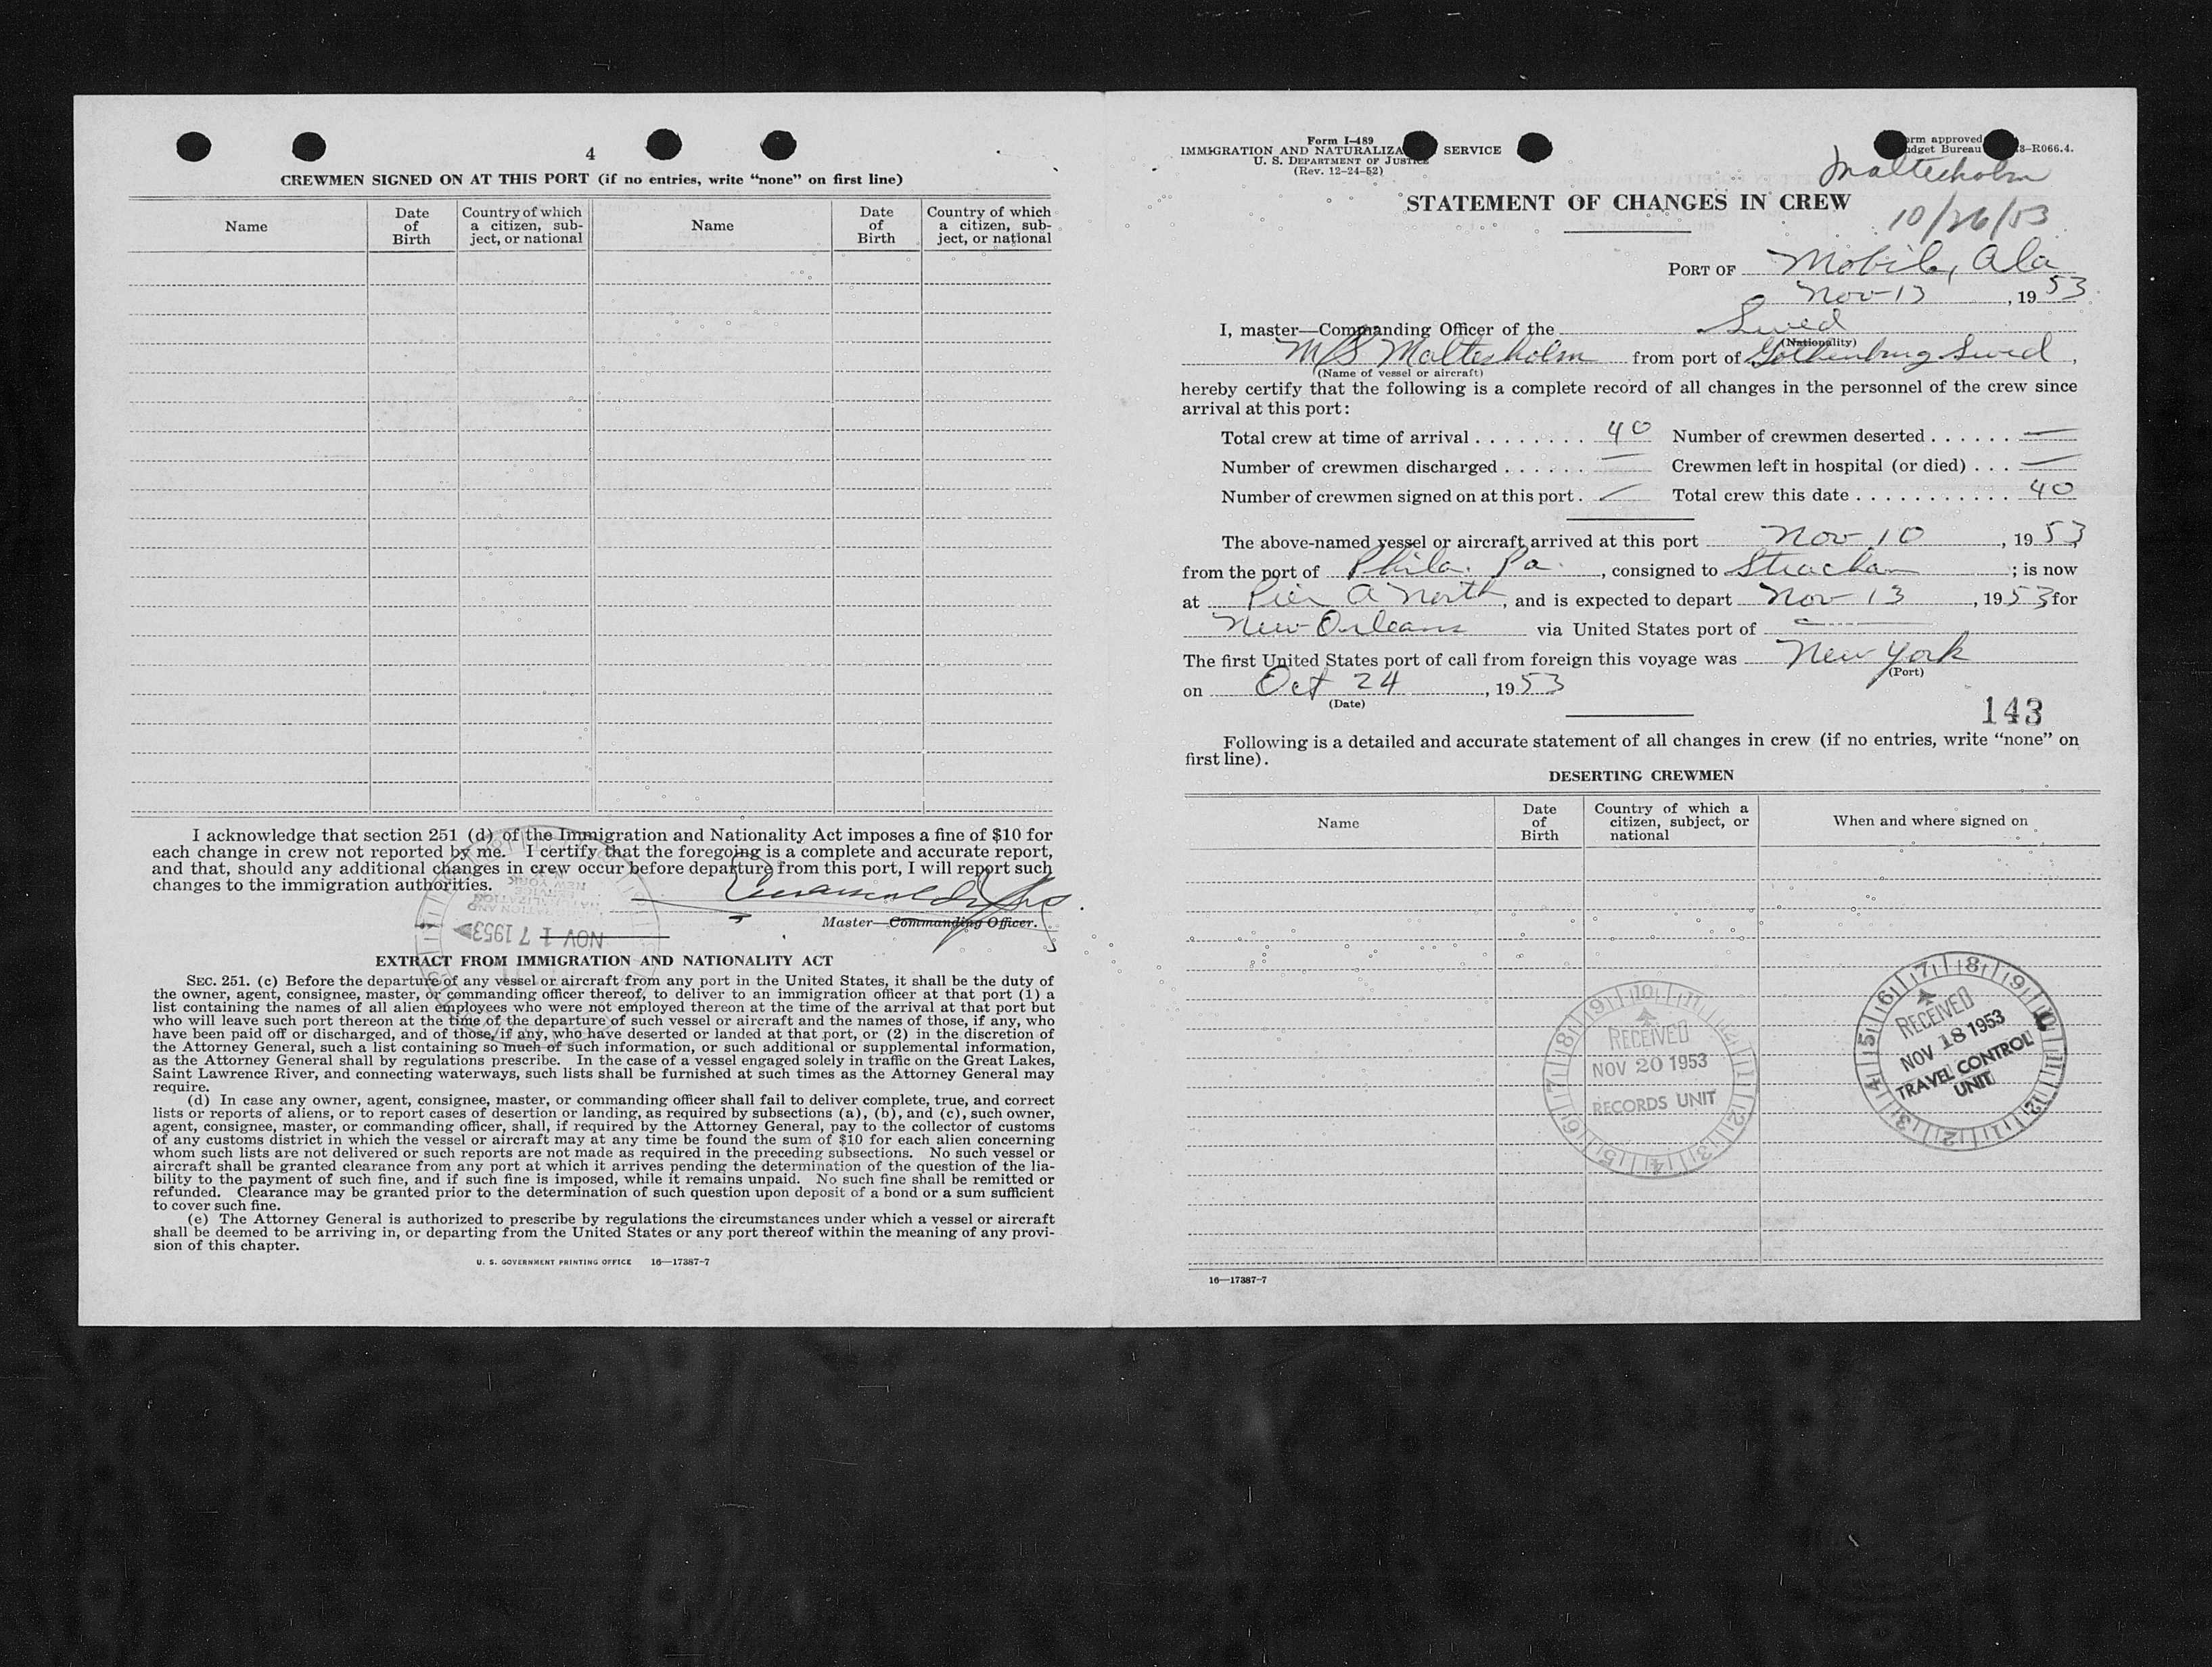 4
CREWMEN SIGNED ON AT THIS PORT (if no entries, write “none” on first line)
Name
Date of Birth
Country of which a citizen, subject, or national
Name
Date of Birth
Country of which a citizen, subject, or national
I acknowledge that section 251 (d) of the Immigration and Nationality Act imposes a fine of $10 for
each change in crew not reported by me. I certify that the foregoing is a complete and accurate report,
and that, should any additional changes in crew occur before departure from this port, I will report such
changes to the immigration authorities.
Master—Commanding Officer.
NOV 17 1953
EXTRACT FROM IMMIGRATION AND NATIONALITY ACT
SEC. 251. (c) Before the departure of any vessel or aircraft from any port in the United States, it shall be the duty of
the owner, agent, consignee, master, or commanding officer thereof, to deliver to an immigration officer at that port (1) a
list containing the names of all alien employees who were not employed thereon at the time of the arrival at that port but
who will leave such port thereon at the time of the departure of such vessel or aircraft and the names of those, if any, who
have been paid off or discharged, and of those, if any, who have deserted or landed at that port, or (2) in the discretion of
the Attorney General, such a list containing so much of such information, or such additional or supplemental information,
as the Attorney General shall by regulations prescribe. In the case of a vessel engaged solely in traffic on the Great Lakes,
Saint Lawrence River, and connecting waterways, such lists shall be furnished at such times as the Attorney General may
require.
(d) In case any owner, agent, consignee, master, or commanding officer shall fail to deliver complete, true, and correct
lists or reports of aliens, or to report cases of desertion or landing, as required by subsections (a), (b), and (c), such owner,
agent, consignee, master, or commanding officer, shall, if required by the Attorney General, pay to the collector of customs
of any customs district in which the vessel or aircraft may at any time be found the sum of $10 for each alien concerning
whom such lists are not delivered or such reports are not made as required in the preceding subsections. No such vessel or
aircraft shall be granted clearance from any port at which it arrives pending the determination of the question of the lia-
bility to the payment of such fine, and if such fine is imposed, while it remains unpaid. No such fine shall be remitted or
refunded. Clearance may be granted prior to the determination of such question upon deposit of a bond or a sum sufficient
to cover such fine.
(e) The Attorney General is authorized to prescribe by regulations the circumstances under which a vessel or aircraft
shall be deemed to be arriving in, or departing from the United States or any port thereof within the meaning of any provi-
sion of this chapter.
U. S. GOVERNMENT PRINTING OFFICE 16—17387-7
Form I-489
IMMIGRATION AND NATURALIZA SERVICE
U. S. DEPARTMENT OF JUSTICE
(Rev. 12-24-52)
orm approved
dget Bureau 3-R066.4.
Maltesholm
10/26/53
STATEMENT OF CHANGES IN CREW
PORT OF Mobile, Ala
Nov 13, 1953
I, master—Commanding Officer of the Swed
(Nationality)
M/S Maltesholm from port of Gothenburg Swed,
(Name of vessel or aircraft)
hereby certify that the following is a complete record of all changes in the personnel of the crew since
arrival at this port:
Total crew at time of arrival . . . . . . . . 40 Number of crewmen deserted . . . . . . —
Number of crewmen discharged . . . . . . — Crewmen left in hospital (or died) . . . —
Number of crewmen signed on at this port . — Total crew this date . . . . . . . . . . . 40
The above-named vessel or aircraft arrived at this port Nov 10, 1953
from the port of Phila. Pa., consigned to Strachan; is now
at Pier A North, and is expected to depart Nov 13, 1953 for
New Orleans via United States port of —
The first United States port of call from foreign this voyage was New York
(Port)
on Oct 24, 1953
(Date)
143
Following is a detailed and accurate statement of all changes in crew (if no entries, write “none” on
first line).
DESERTING CREWMEN
Name
Date of Birth
Country of which a citizen, subject, or national
When and where signed on
RECEIVED
NOV 20 1953
RECORDS UNIT
RECEIVED
NOV 18 1953
TRAVEL CONTROL
UNIT
16—17387-7